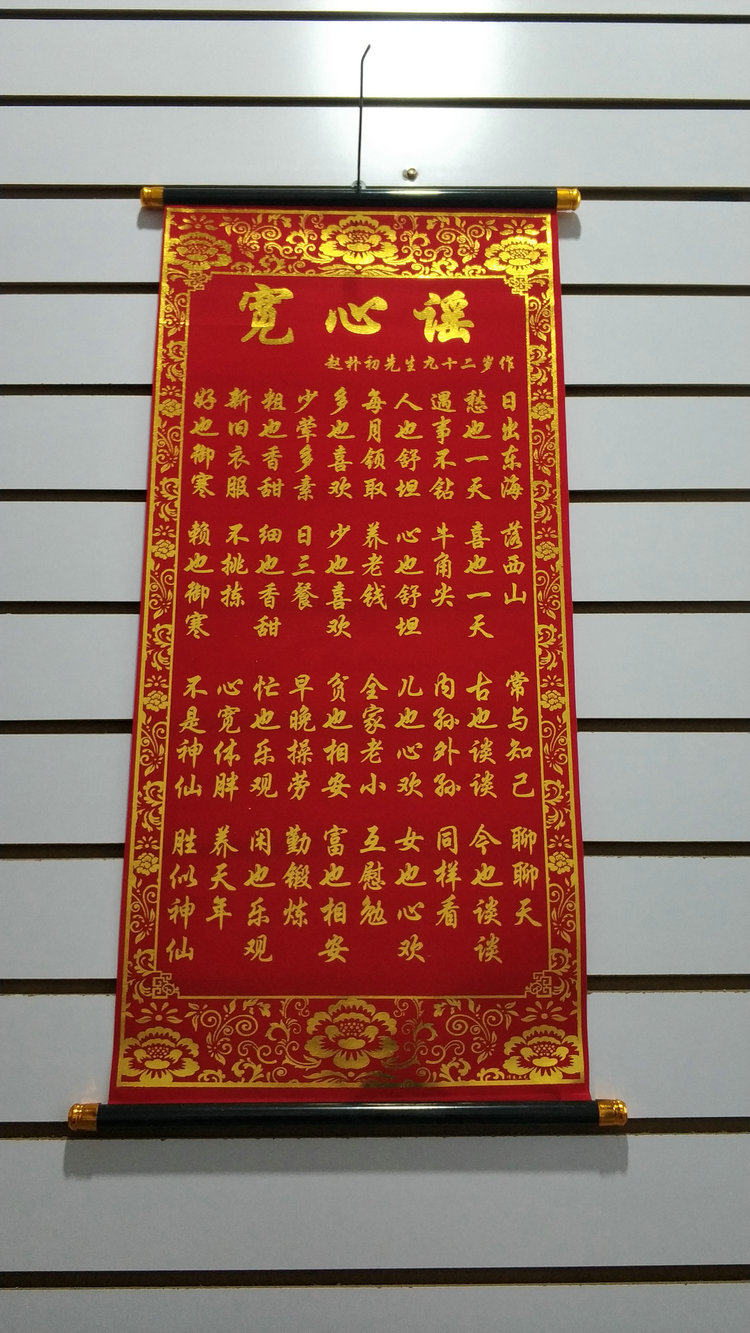 宽心谣
赵朴初先生九十二岁作
日出东海 落西山
愁也一天 喜也一天
遇事不钻 牛角尖
人也舒坦 心也舒坦
每月领取 养老钱
多也喜欢 少也喜欢
少荤多素 日三餐
粗也香甜 细也香甜
新旧衣服 不挑拣
好也御寒 赖也御寒
常与知己 聊聊天
古也谈谈 今也谈谈
内孙外孙 同样看
儿也心欢 女也心欢
全家老小 互慰勉
贫也相安 富也相安
早晚操劳 勤锻炼
忙也乐观 闲也乐观
心宽体胖 养天年
不是神仙 胜似神仙